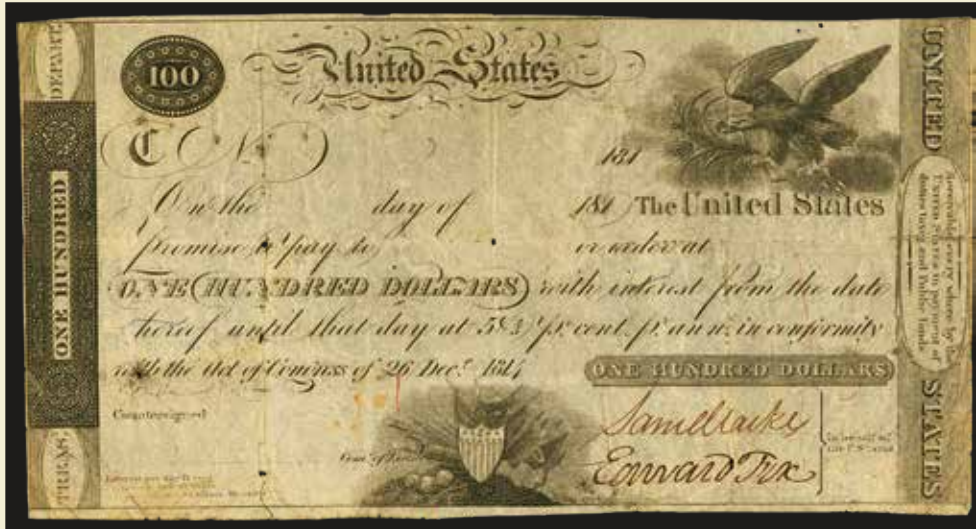 DEPART.
ONE HUNDRED
TREAS.
100
United States
C No
181
On the day of 181 The United States
promise to pay to or order at
ONE (HUNDRED DOLLARS) with interest from the date
hereof until that day at 5 2/5 pr. cent. pr. ann. in conformity
with the Act of Congress of 26 Decr. 1814
ONE HUNDRED DOLLARS
Countersigned
Edward Fox
In behalf of
the U. States
UNITED
Receivable every where by the
United States in payment of
duties taxes and Public Lands
STATES